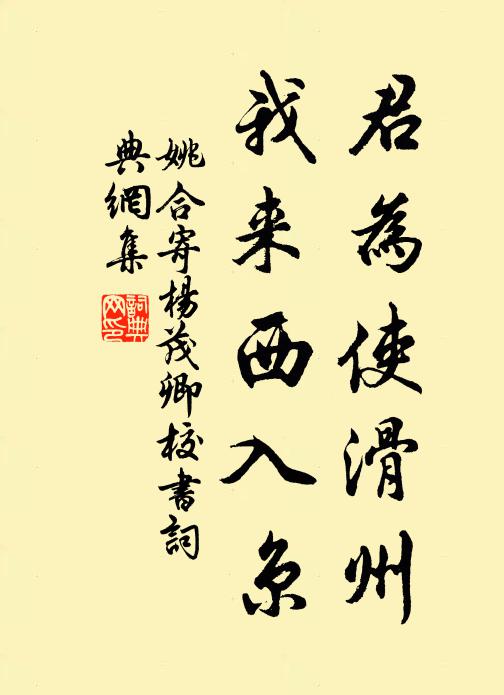 君為使滑州
我来西入京
姚合寄楊茂卿校書詞
典網集
詞典
网印